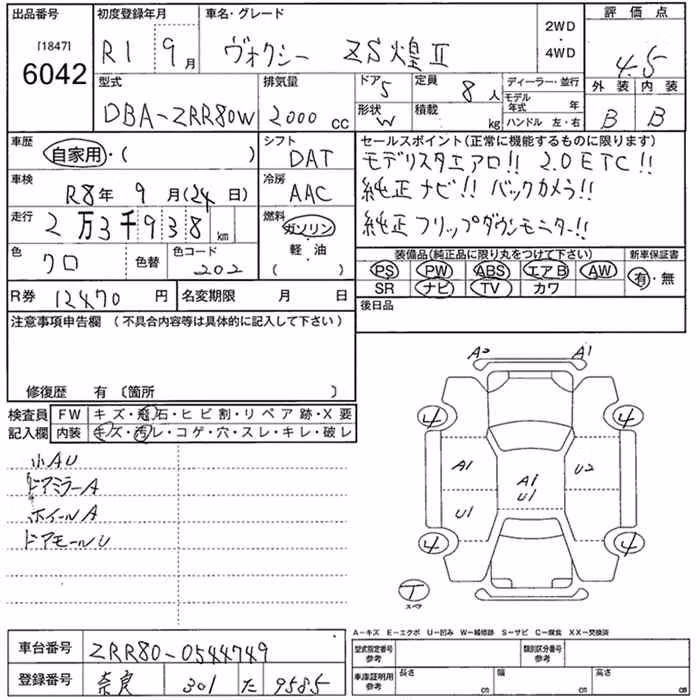 出品番号 初度登録年月 車名・グレード 2WD・4WD 評価点
[1847]
6042 R1 9月 ヴォクシー ZS煌Ⅱ 4.5
型式 排気量 ドア 5 定員 8人 ディーラー・並行 外装 内装
DBA-ZRR80W 2000cc 形状 W 積載 kg モデル年式 年 ハンドル 左・右 B B
車歴 自家用・( ) シフト DAT セールスポイント(正常に機能するものに限ります)
モデリスタエアロ!! 2.0ETC!!
車検 R8年9月(24日) 冷房 AAC 純正ナビ!! バックカメラ!!
走行 2万3千938km 燃料 ガソリン 純正フリップダウンモニター!!
軽・油
( )
色 クロ 色替 色コード 202 装備品(純正品に限り丸をつけて下さい) 新車保証書
PS PW ABS エアB AW 有・無
SR ナビ TV カワ
R券 12470円 名変期限 月 日 後日品
注意事項申告欄(不具合内容等は具体的に記入して下さい)
修復歴 有〔箇所 〕
検査員 FW キズ・飛石・ヒビ割・リペア跡・X要
記入欄 内装 キズ・汚レ・コゲ・穴・スレ・キレ・破レ
小AU
ドアミラーA
ホイールA
ドアモールU
A1
4 4
A1 A1 U2
U1 U1
4 4
T
スペア
A-キズ E-エクボ U-凹み W-補修跡 S-サビ C-腐食 XX-交換済
車台番号 ZRR80-0544749 型式指定番号 参考 類別区分番号 参考
登録番号 奈良 301 た 9585 車庫証明用 参考 長さ cm 幅 cm 高さ cm